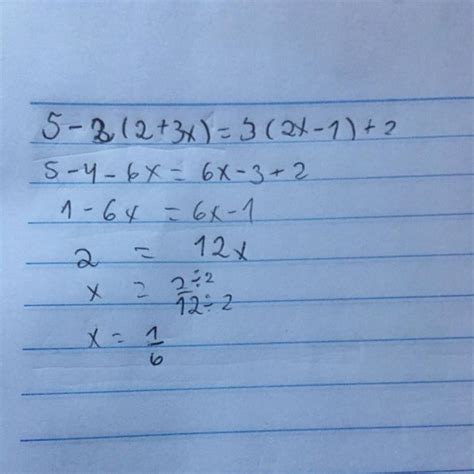 5-2(2+3x)=3(2x-1)+2
5-4-6x=6x-3+2
1-6x=6x-1
2 = 12x
x = 2÷2/12÷2
x = 1/6